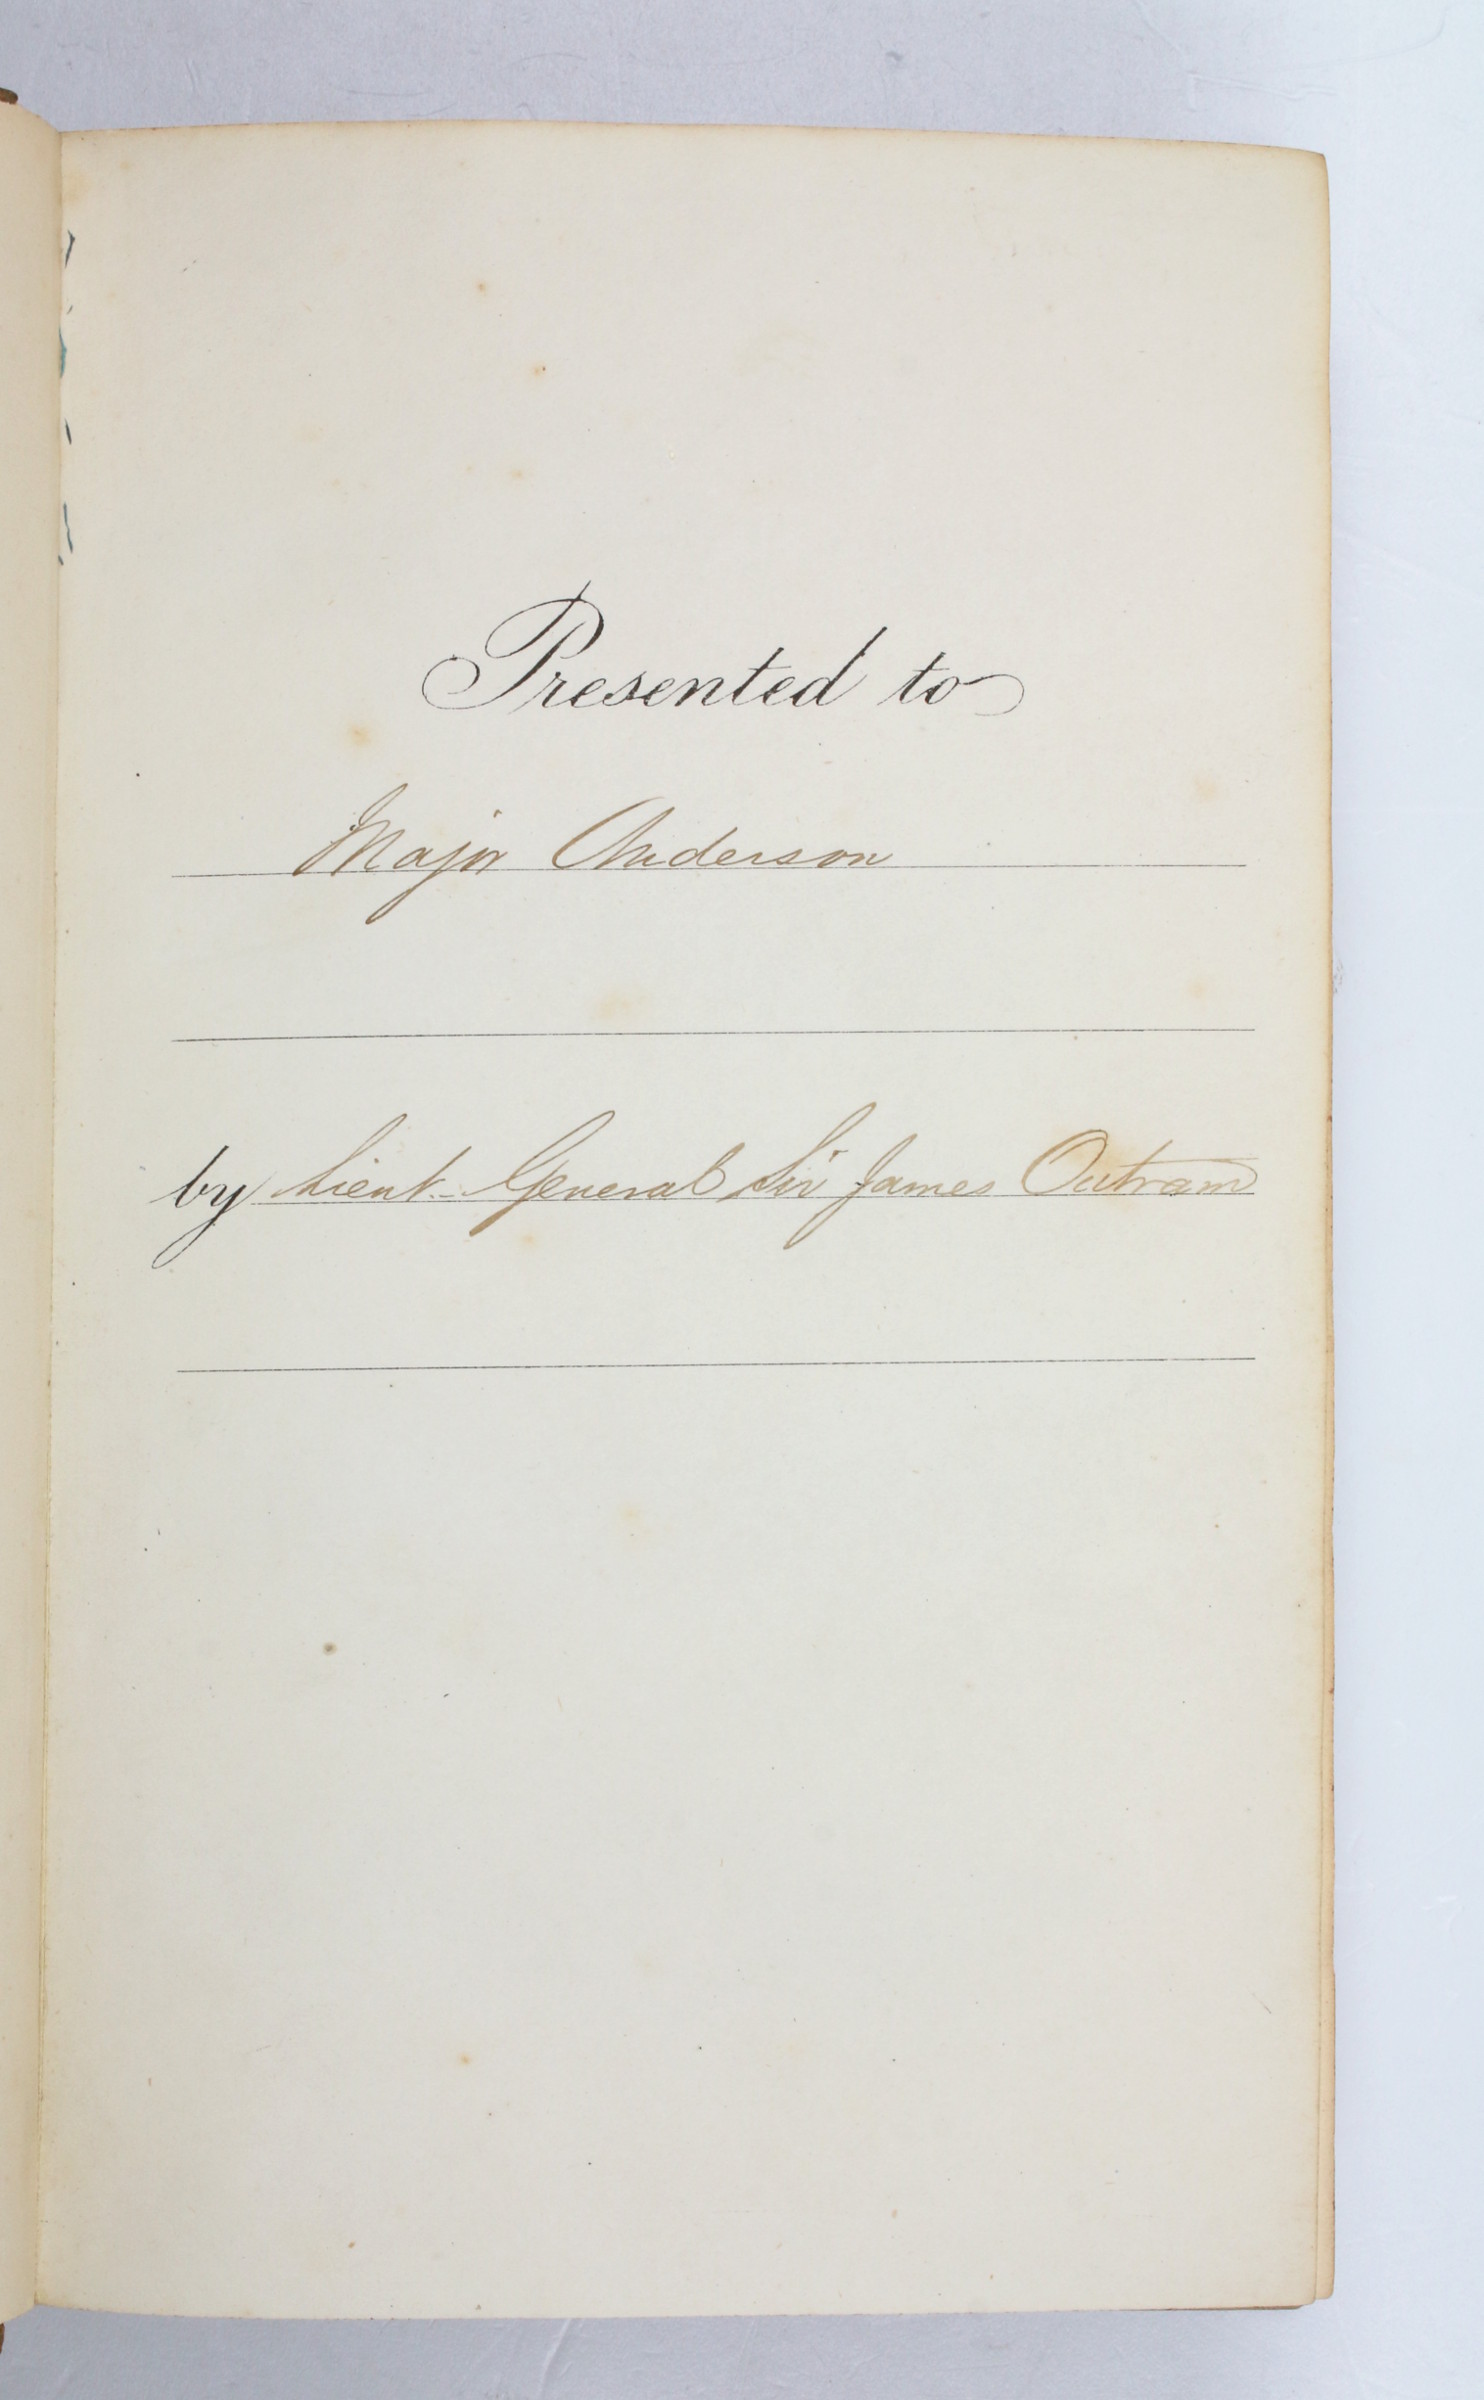 Presented to
Major Anderson
by Lieut. General Sir James Outram